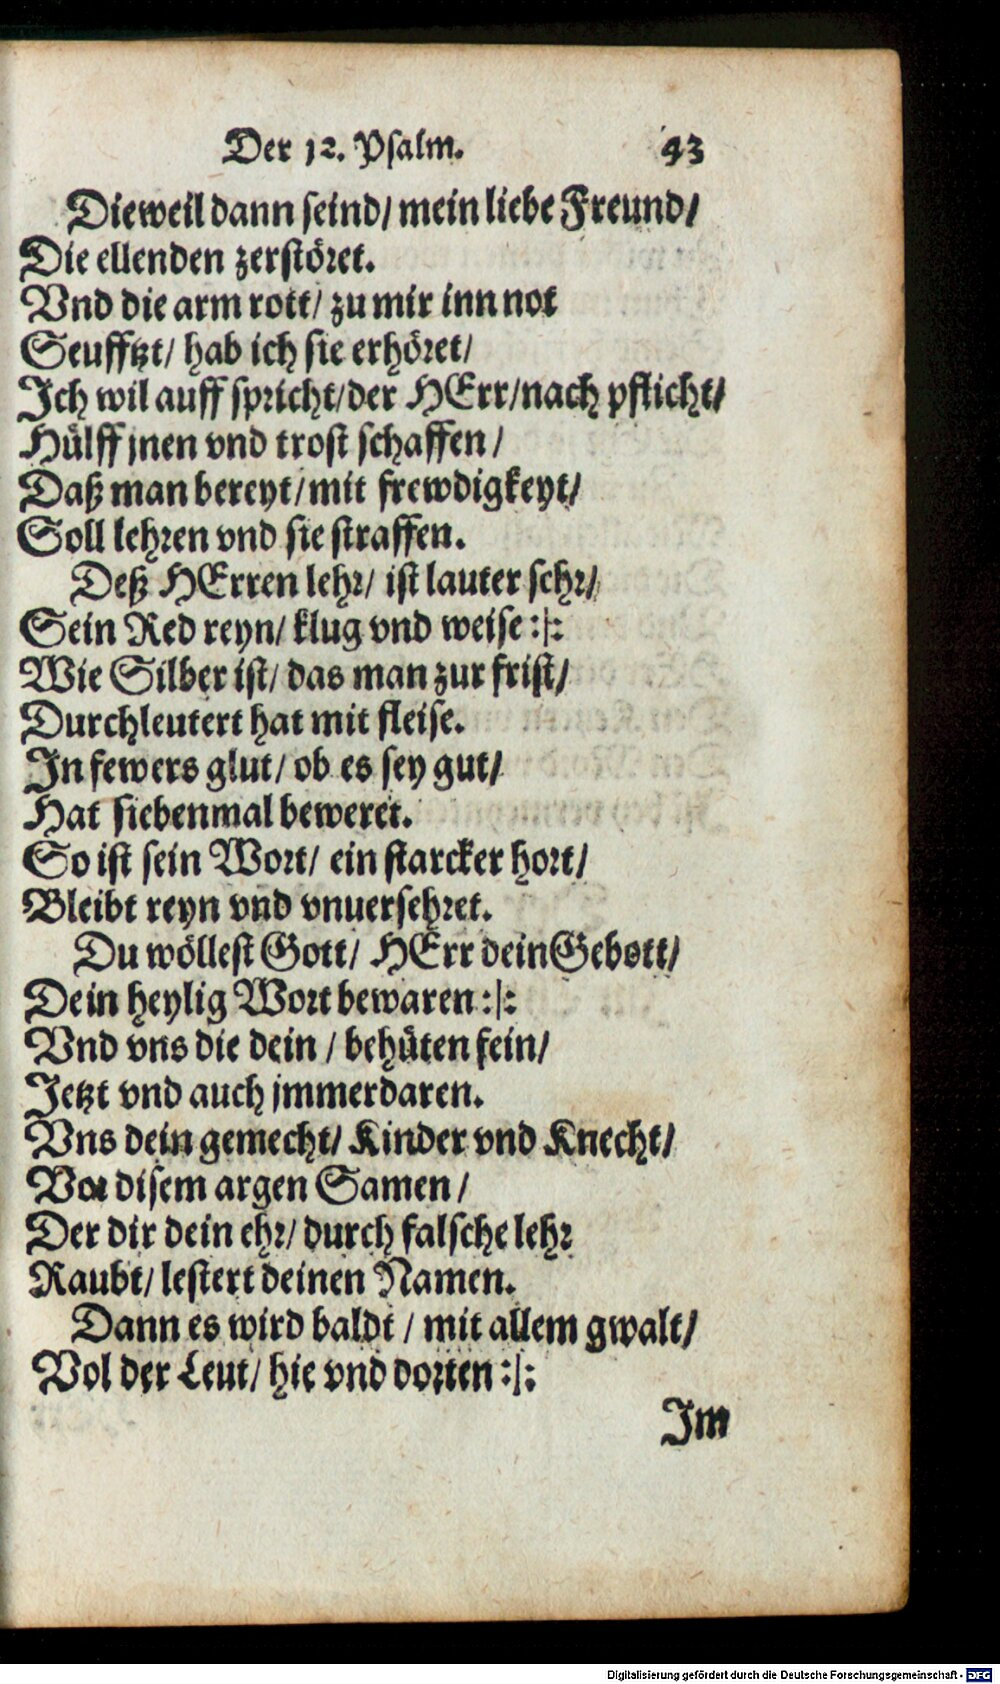 Der 12. Psalm. 43
Dieweil dann seind/ mein liebe Freund/
Die ellenden zerstöret.
Vnd die arm rott/ zu mir inn not
Seufftzt/ hab ich sie erhöret/
Ich wil auff spricht/der HErr/nach pflicht/
Hülff jnen vnd trost schaffen/
Daß man bereyt/mit frewdigkeyt/
Soll lehren vnd sie straffen.
Deß HErren lehr/ ist lauter sehr/
Sein Red reyn/ klug vnd weise :|:
Wie Silber ist/ das man zur frist/
Durchleutert hat mit fleise.
In fewers glut/ ob es sey gut/
Hat siebenmal beweret.
So ist sein Wort/ ein starcker hort/
Bleibt reyn vnd vnuersehret.
Du wöllest Gott/ HErr dein Gebott/
Dein heylig Wort bewaren :|:
Vnd vns die dein / behüten fein/
Jetzt vnd auch jmmerdaren.
Vns dein gemecht/ Kinder vnd Knecht/
Vor disem argen Samen/
Der dir dein ehr/ durch falsche lehr
Raubt/ lestert deinen Namen.
Dann es wird baldt / mit allem gwalt/
Vol der Leut/ hie vnd dorten :|:
Im
Digitalisierung gefördert durch die Deutsche Forschungsgemeinschaft - DFG